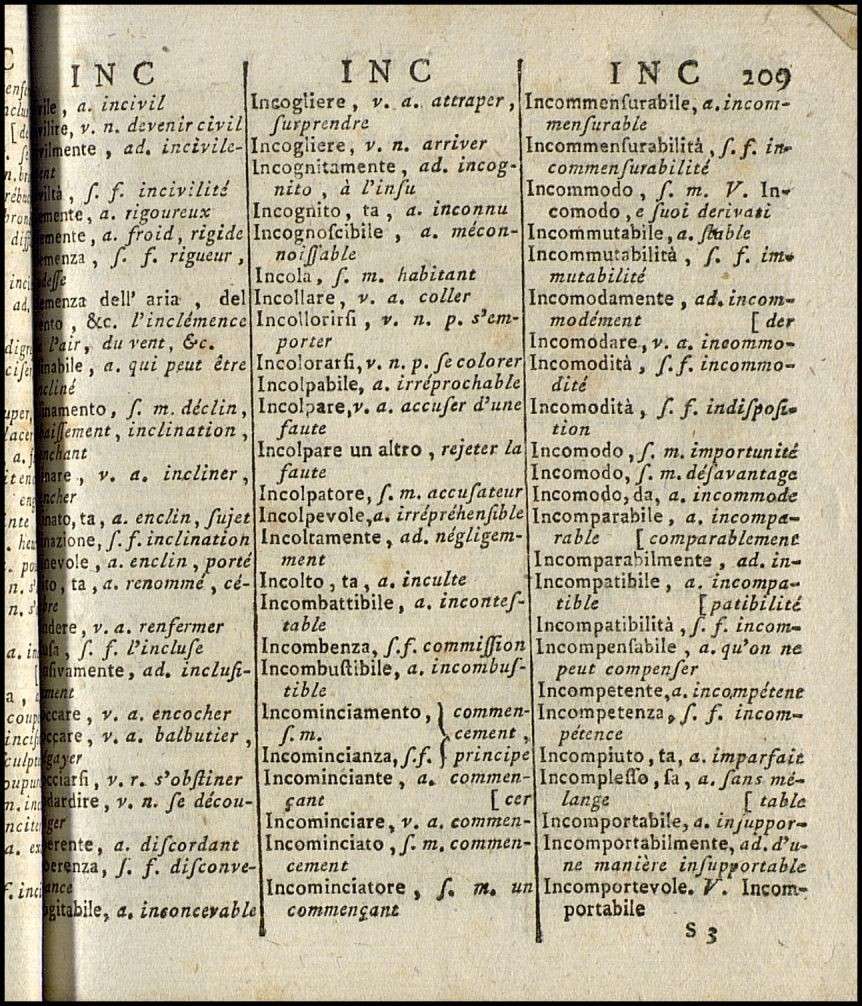 INC
INC
INC 209
vile, a. incivil
vilire, v. n. devenir civil
vilmente, ad. incivile-
ent
viltà, ſ. f. incivilité
emente, a. rigoureux
emente, a. froid, rigide
emenza, ſ. f. rigueur,
deſſe
emenza dell' aria, del
ento, &c. l'inclémence
l'air, du vent, &c.
inabile, a. qui peut être
cliné
inamento, ſ. m. déclin,
aiſſement, inclination,
nchant
inare, v. a. incliner,
ncher
inato, ta, a. enclin, ſujet
inazione, ſ. f. inclination
inevole, a. enclin, porté
ito, ta, a. renommé, cé-
bre
udere, v. a. renfermer
uſa, ſ. f. l'incluſe
uſivamente, ad. incluſi-
ment
occare, v. a. encocher
occare, v. a. balbutier,
égayer
occiarſi, v. r. s'obſtiner
odardire, v. n. ſe décou-
ager
oerente, a. diſcordant
oerenza, ſ. f. diſconve-
ance
ogitabile, a. inconcevable
Incogliere, v. a. attraper,
ſurprendre
Incogliere, v. n. arriver
Incognitamente, ad. incog-
nito, à l'inſu
Incognito, ta, a. inconnu
Incognoſcibile, a. mécon-
noiſſable
Incola, ſ. m. habitant
Incollare, v. a. coller
Incollorirſi, v. n. p. s'em-
porter
Incolorarſi, v. n. p. ſe colorer
Incolpabile, a. irréprochable
Incolpare, v. a. accuſer d'une
faute
Incolpare un altro, rejeter la
faute
Incolpatore, ſ. m. accuſateur
Incolpevole, a. irrépréhenſible
Incoltamente, ad. négligem-
ment
Incolto, ta, a. inculte
Incombattibile, a. inconteſ-
table
Incombenza, ſ. f. commiſſion
Incombuſtibile, a. incombuſ-
tible
Incominciamento, } commen-
ſ. m. } cement,
Incomincianza, ſ. f. } principe
Incominciante, a. commen-
çant [cer
Incominciare, v. a. commen-
Incominciato, ſ. m. commen-
cement
Incominciatore, ſ. m. un
commençant
Incommenſurabile, a. incom-
menſurable
Incommenſurabilità, ſ. f. in-
commenſurabilité
Incommodo, ſ. m. V. In-
comodo, e ſuoi derivati
Incommutabile, a. ſtable
Incommutabilità, ſ. f. im-
mutabilité
Incomodamente, ad. incom-
modément [der
Incomodare, v. a. incommo-
Incomodità, ſ. f. incommo-
dité
Incomodità, ſ. f. indiſpoſi-
tion
Incomodo, ſ. m. importunité
Incomodo, ſ. m. déſavantage
Incomodo, da, a. incommode
Incomparabile, a. incompa-
rable [comparablement
Incomparabilmente, ad. in-
Incompatibile, a. incompa-
tible [patibilité
Incompatibilità, ſ. f. incom-
Incompenſabile, a. qu'on ne
peut compenſer
Incompetente, a. incompétent
Incompetenza, ſ. f. incom-
pétence
Incompiuto, ta, a. imparfait
Incompleſſo, ſa, a. ſans mé-
lange [table
Incomportabile, a. inſuppor-
Incomportabilmente, ad. d'u-
ne manière inſupportable
Incomportevole. V. Incom-
portabile
S 3